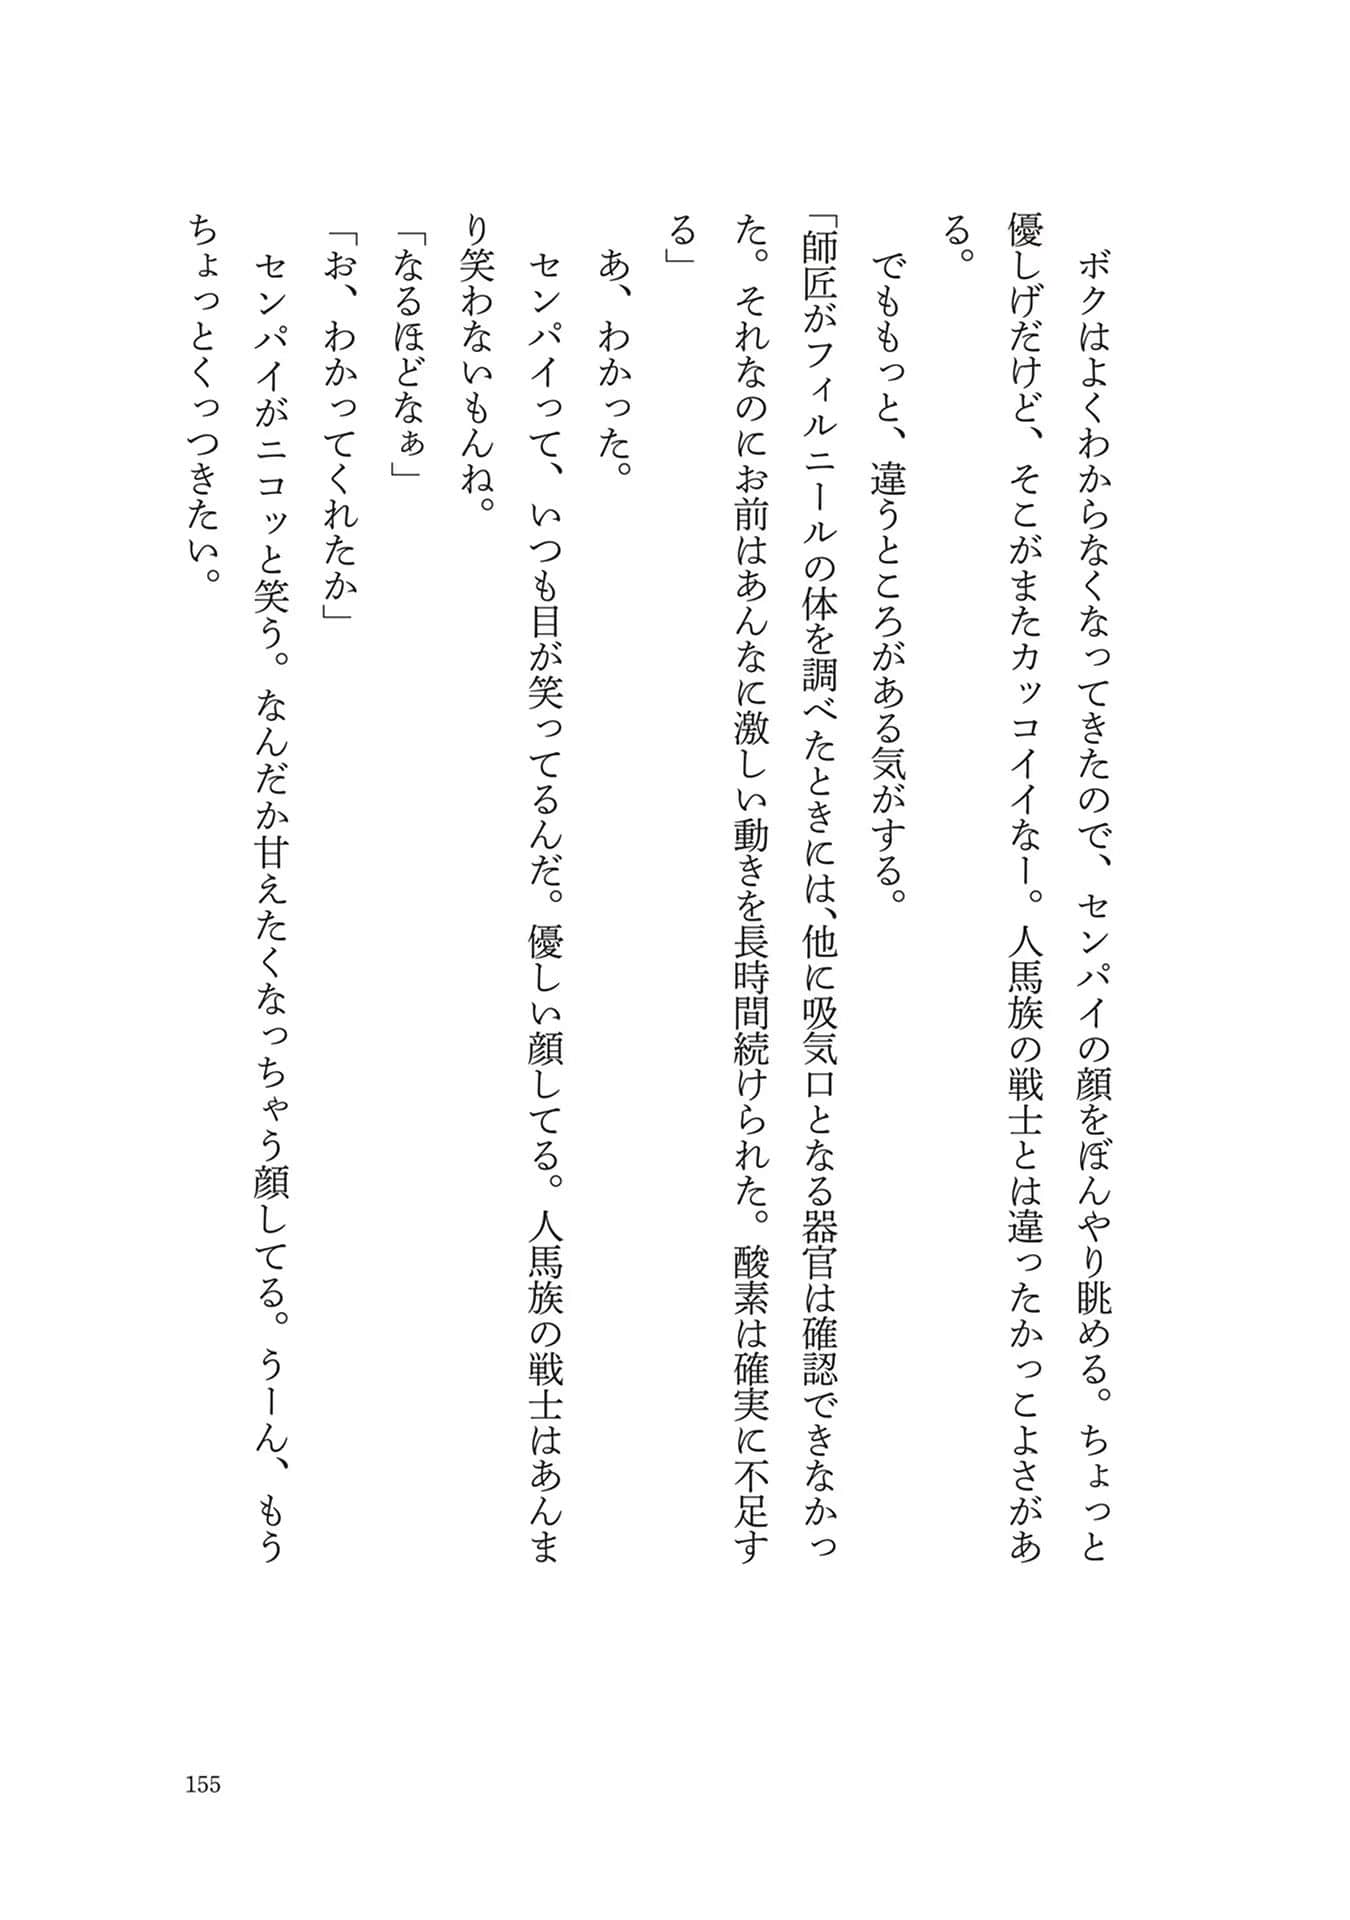 ボクはよくわからなくなってきたので、センパイの顔をぼんやり眺める。ちょっと
優しげだけど、そこがまたカッコイイなー。人馬族の戦士とは違ったかっこよさがあ
る。
　でももっと、違うところがある気がする。
「師匠がフィルニールの体を調べたときには、他に吸気口となる器官は確認できなかっ
た。それなのにお前はあんなに激しい動きを長時間続けられた。酸素は確実に不足す
る」
　あ、わかった。
　センパイって、いつも目が笑ってるんだ。優しい顔してる。人馬族の戦士はあんま
り笑わないもんね。
「なるほどなぁ」
「お、わかってくれたか」
　センパイがニコッと笑う。なんだか甘えたくなっちゃう顔してる。うーん、もう
ちょっとくっつきたい。
155